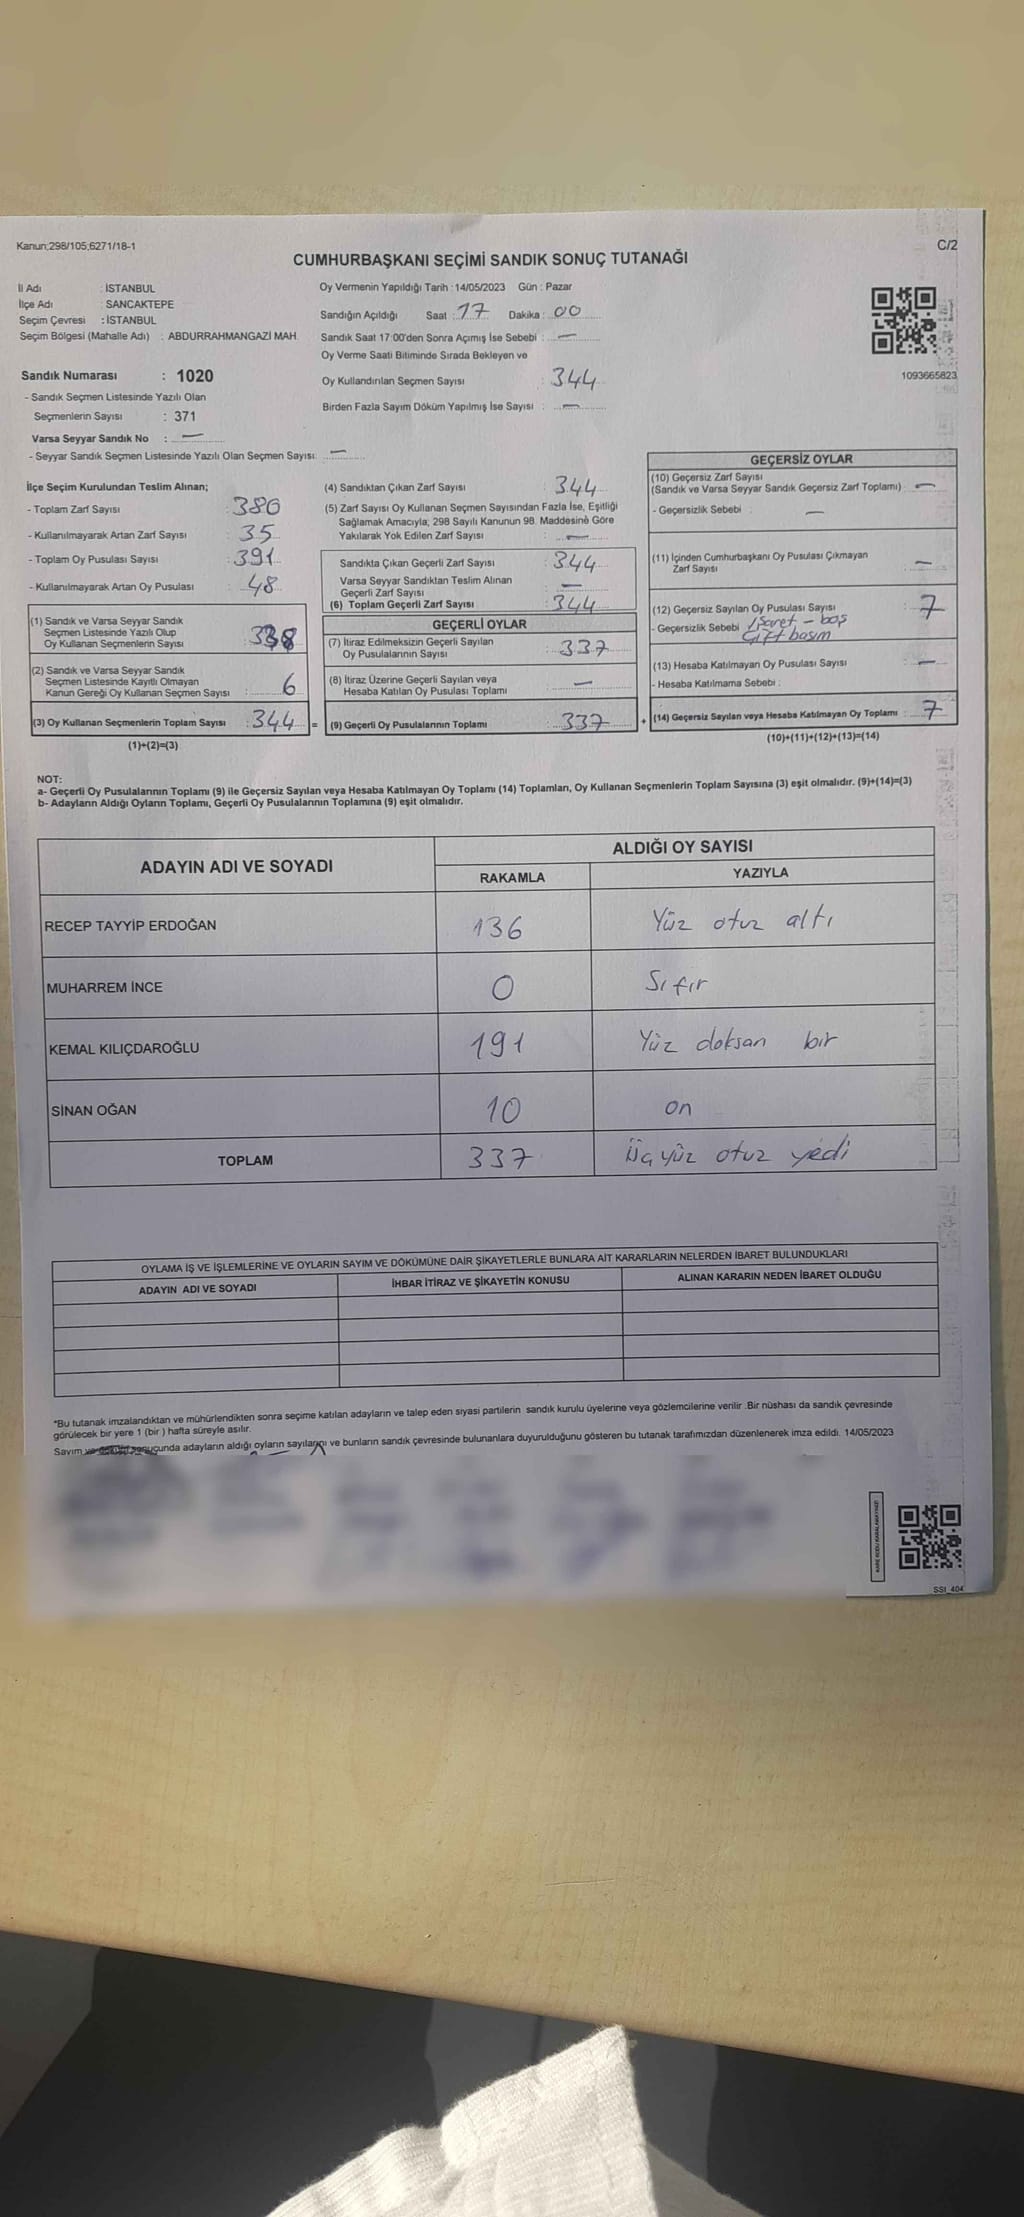 Kanun;298/105;6271/18-1
C/2
CUMHURBAŞKANI SEÇİMİ SANDIK SONUÇ TUTANAĞI
İl Adı : İSTANBUL
İlçe Adı : SANCAKTEPE
Seçim Çevresi : İSTANBUL
Seçim Bölgesi (Mahalle Adı) : ABDURRAHMANGAZİ MAH.
Sandık Numarası : 1020
- Sandık Seçmen Listesinde Yazılı Olan
Seçmenlerin Sayısı : 371
Varsa Seyyar Sandık No : —
- Seyyar Sandık Seçmen Listesinde Yazılı Olan Seçmen Sayısı: —
Oy Vermenin Yapıldığı Tarih : 14/05/2023 Gün : Pazar
Sandığın Açıldığı Saat : 17 Dakika : 00
Sandık Saat 17:00'den Sonra Açımış İse Sebebi : —
Oy Verme Saati Bitiminde Sırada Bekleyen ve
Oy Kullandırılan Seçmen Sayısı : 344
Birden Fazla Sayım Döküm Yapılmış İse Sayısı : —
1093665823
İlçe Seçim Kurulundan Teslim Alınan;
- Toplam Zarf Sayısı : 380
- Kullanılmayarak Artan Zarf Sayısı : 35
- Toplam Oy Pusulası Sayısı : 391
- Kullanılmayarak Artan Oy Pusulası : 48
(1) Sandık ve Varsa Seyyar Sandık
Seçmen Listesinde Yazılı Olup
Oy Kullanan Seçmenlerin Sayısı : 338
(2) Sandık ve Varsa Seyyar Sandık
Seçmen Listesinde Kayıtlı Olmayan
Kanun Gereği Oy Kullanan Seçmen Sayısı : 6
(3) Oy Kullanan Seçmenlerin Toplam Sayısı : 344 =
(1)+(2)=(3)
(4) Sandıktan Çıkan Zarf Sayısı : 344
(5) Zarf Sayısı Oy Kullanan Seçmen Sayısından Fazla İse, Eşitliği
Sağlamak Amacıyla; 298 Sayılı Kanunun 98. Maddesine Göre
Yakılarak Yok Edilen Zarf Sayısı : —
Sandıkta Çıkan Geçerli Zarf Sayısı : 344
Varsa Seyyar Sandıktan Teslim Alınan
Geçerli Zarf Sayısı : —
(6) Toplam Geçerli Zarf Sayısı : 344
GEÇERLİ OYLAR
(7) İtiraz Edilmeksizin Geçerli Sayılan
Oy Pusulalarının Sayısı : 337
(8) İtiraz Üzerine Geçerli Sayılan veya
Hesaba Katılan Oy Pusulası Toplamı : —
(9) Geçerli Oy Pusulalarının Toplamı : 337 +
GEÇERSİZ OYLAR
(10) Geçersiz Zarf Sayısı
(Sandık ve Varsa Seyyar Sandık Geçersiz Zarf Toplamı) : —
- Geçersizlik Sebebi : —
(11) İçinden Cumhurbaşkanı Oy Pusulası Çıkmayan
Zarf Sayısı : —
(12) Geçersiz Sayılan Oy Pusulası Sayısı : 7
- Geçersizlik Sebebi işaret - boş
Çift basım
(13) Hesaba Katılmayan Oy Pusulası Sayısı : —
- Hesaba Katılmama Sebebi :
(14) Geçersiz Sayılan veya Hesaba Katılmayan Oy Toplamı : 7
(10)+(11)+(12)+(13)=(14)
NOT:
a- Geçerli Oy Pusulalarının Toplamı (9) ile Geçersiz Sayılan veya Hesaba Katılmayan Oy Toplamı (14) Toplamları, Oy Kullanan Seçmenlerin Toplam Sayısına (3) eşit olmalıdır. (9)+(14)=(3)
b- Adayların Aldığı Oyların Toplamı, Geçerli Oy Pusulalarının Toplamına (9) eşit olmalıdır.
ADAYIN ADI VE SOYADI ALDIĞI OY SAYISI
RAKAMLA YAZIYLA
RECEP TAYYİP ERDOĞAN 136 Yüz otuz altı
MUHARREM İNCE 0 Sıfır
KEMAL KILIÇDAROĞLU 191 Yüz doksan bir
SİNAN OĞAN 10 on
TOPLAM 337 Üçyüz otuz yedi
OYLAMA İŞ VE İŞLEMLERİNE VE OYLARIN SAYIM VE DÖKÜMÜNE DAİR ŞİKAYETLERLE BUNLARA AİT KARARLARIN NELERDEN İBARET BULUNDUKLARI
ADAYIN ADI VE SOYADI İHBAR İTİRAZ VE ŞİKAYETİN KONUSU ALINAN KARARIN NEDEN İBARET OLDUĞU
*Bu tutanak imzalandıktan ve mühürlendikten sonra seçime katılan adayların ve talep eden siyasi partilerin sandık kurulu üyelerine veya gözlemcilerine verilir .Bir nüshası da sandık çevresinde
görülecek bir yere 1 (bir ) hafta süreyle asılır.
Sayım sonucunda adayların aldığı oyların sayılarını ve bunların sandık çevresinde bulunanlara duyurulduğunu gösteren bu tutanak tarafımızdan düzenlenerek imza edildi. 14/05/2023
SSI_404